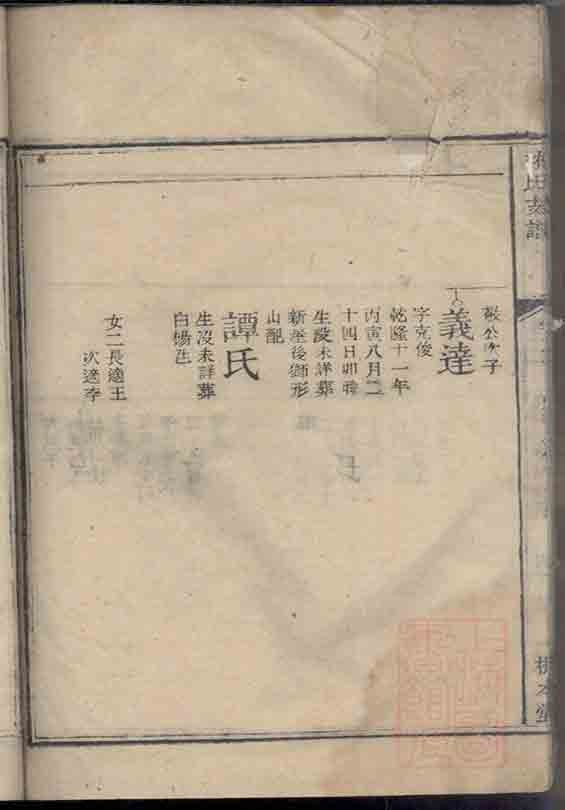 敬公次子
義達
字克俊
乾隆十一年
丙寅八月二
十四日卯時
生歿未詳葬
新屋後獅形
山配
譚氏
生沒未詳葬
白楊
女二長適王
次適李
本堂